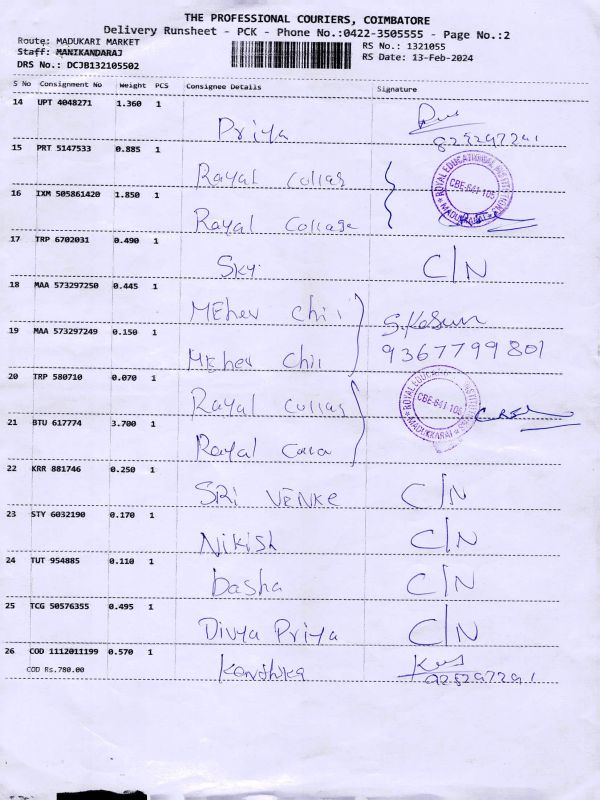 THE PROFESSIONAL COURIERS, COIMBATORE
Delivery Runsheet - PCK - Phone No.:0422-3505555 - Page No.:2
Route: MADUKARI MARKET
Staff: MANIKANDARAJ
DRS No.: DCJB132105502
RS No.: 1321055
RS Date: 13-Feb-2024
S No Consignment No Weight PCS Consignee Details Signature
14 UPT 4048271 1.360 1 Priya
15 PRT 5147533 0.885 1 Rayal Collag
16 IXM 505861420 1.850 1 Rayal Collage
ROYAL EDUCATIONAL INSTITUTIONS
CBE-641 105
MADUKKARAI
17 TRP 6702031 0.490 1 Sky C/N
18 MAA 573297250 0.445 1 MEhev Chil
19 MAA 573297249 0.150 1 MEhev Chil
9367799801
20 TRP 580710 0.070 1 Rayal Collag
21 BTU 617774 3.700 1 Rayal
ROYAL EDUCATIONAL INSTITUTIONS
CBE-641 105
MADUKKARAI
22 KRR 881746 0.250 1 SRi VENKE C/N
23 STY 6032190 0.170 1 Nikish C/N
24 TUT 954885 0.110 1 basha C/N
25 TCG 50576355 0.495 1 Divya Priya C/N
26 COD 1112011199 0.570 1
COD Rs.780.00